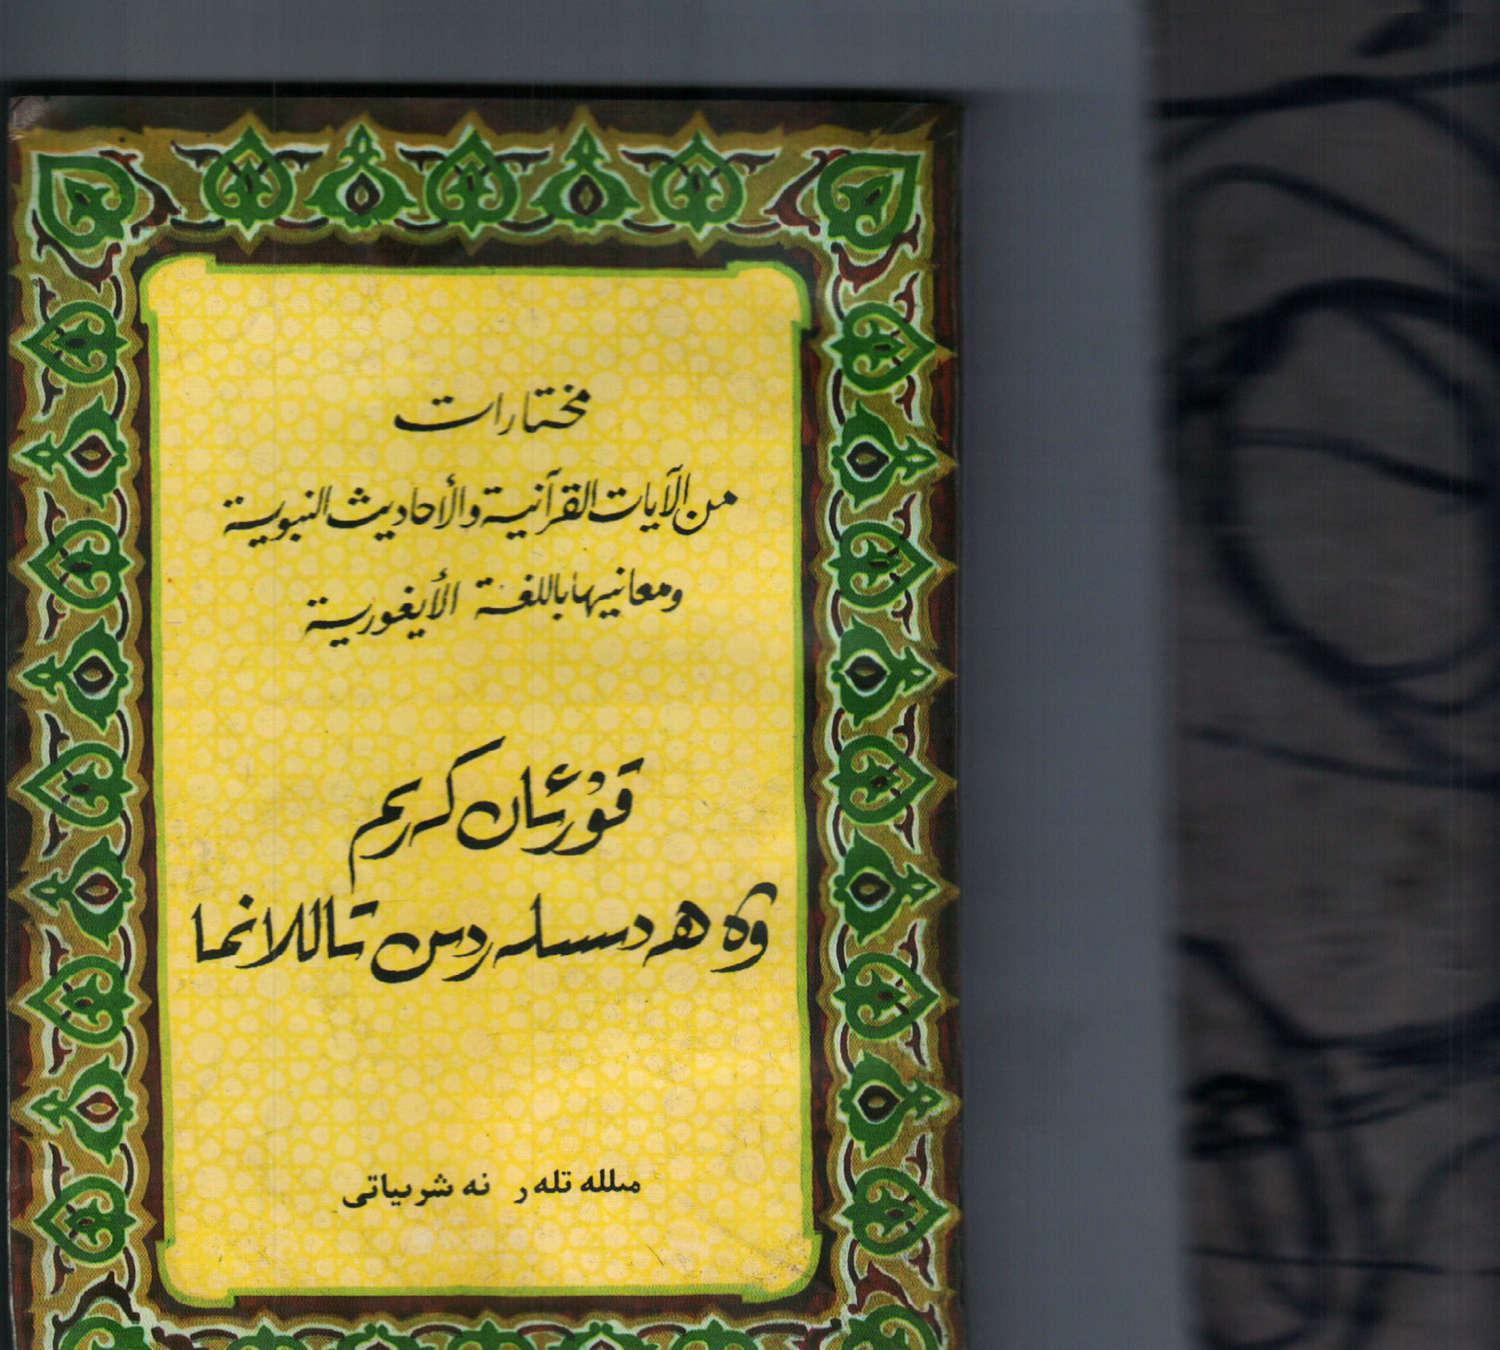 مختارات
من الآيات القرآنية والأحاديث النبوية
ومعانيها باللغة الأيغورية
قۇرئان كەرىم
ۋە ھەدىسلەردىن تاللانما
مىللەتلەر نەشرىياتى